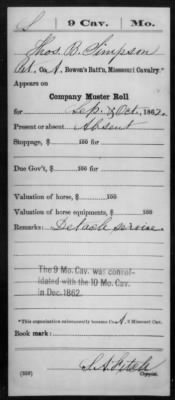 S | 9 Cav. | Mo.
Thos. B. Simpson
Pvt., Co. A, Bowen's Batt'n, Missouri Cavalry.*
Appears on
Company Muster Roll
for Sep. & Oct., 1862.
Present or absent Absent
Stoppage, $ 100
Due Gov't, $ 100
Valuation of horse, $ 100
Valuation of horse equipments, $ 100
Remarks: Detach service
The 9 Mo. Cav. was consol-
idated with the 10 Mo. Cav.
in Dec. 1862.
*This organization subsequently became Co. A, 9 Missouri Cav.
Book mark:
Copyist.